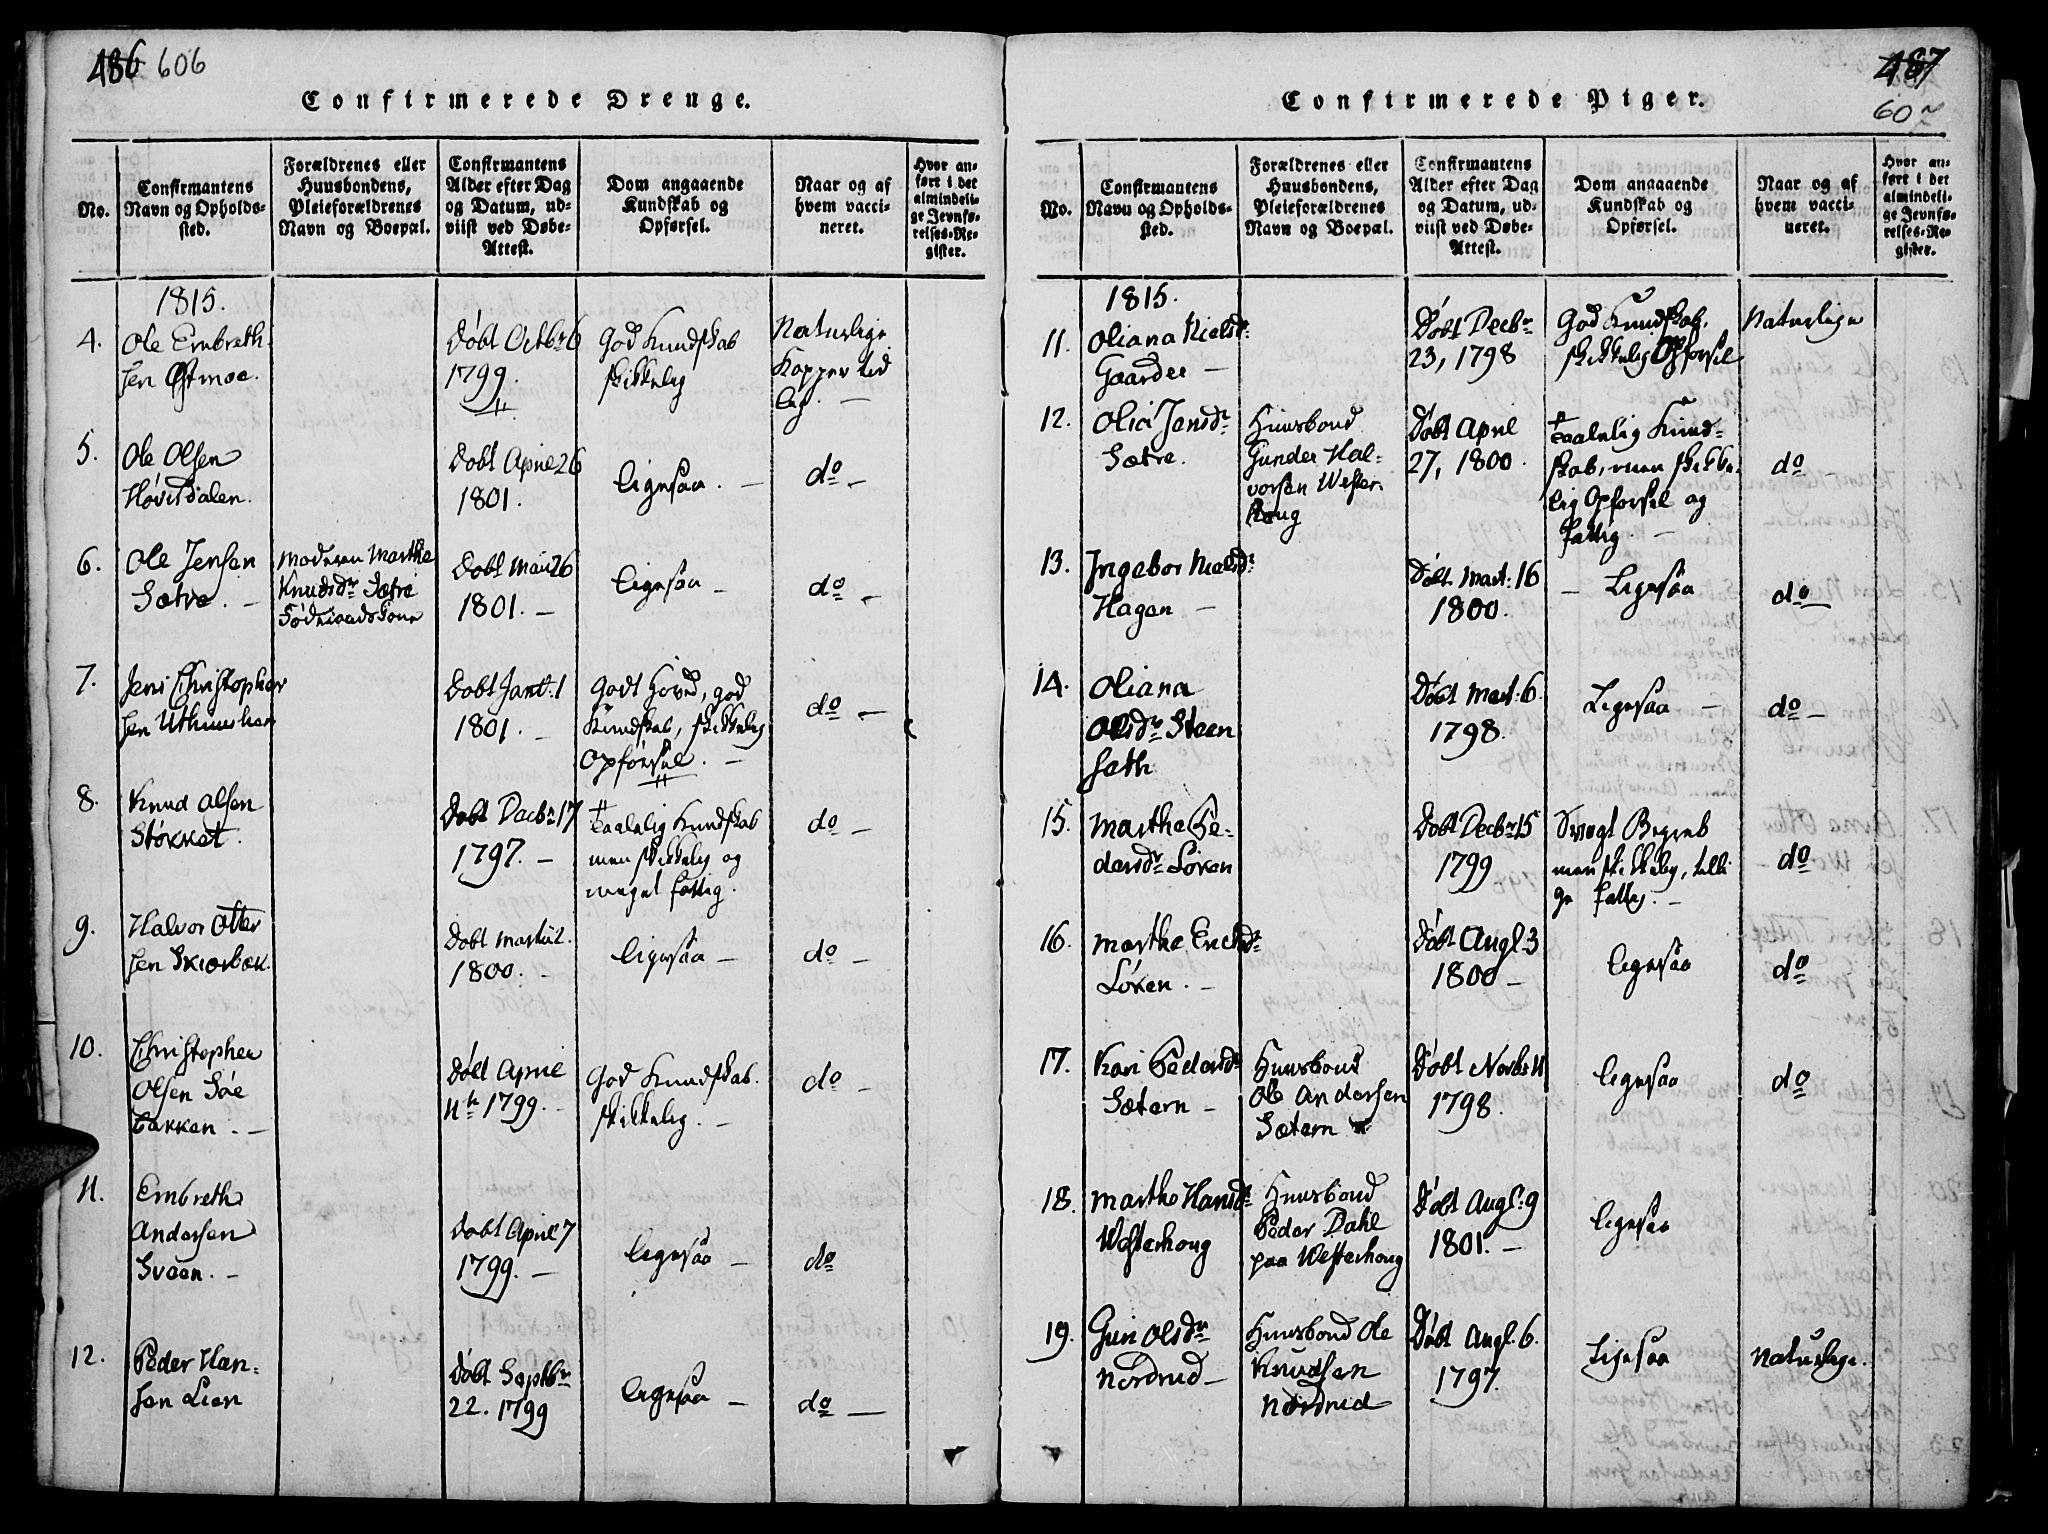 486 606
Confirmerede Drenge.
No.
Confirmantens
Navn og Opholds-
sted.
Forældrenes eller
Huusbondens,
Pleieforældrenes
Navn og Boepæl.
Confirmantens
Alder efter Dag
og Datum, ud-
viist ved Døbe-
Attest.
Dom angaaende
Kundskab og
Opførsel.
Naar og af
hvem vacci-
neret.
Hvor an-
ført i det
almindeli-
ge Jevnfø-
relses-Re-
gister.
1815.
4.
Ole Embreth
sen Østmoe.
Døbt Octbr 6
1799.
God Kundskab
skikkelig
Naturlige
Kopper
5.
Ole Olsen
Høvisdalen.
Dobt April 26
1801.
ligesaa. -
do -
6.
Ole Jensen
Sætre. -
Moderen Marthe
Knudsdr Sætre
Dobt Maii 26
1801. -
ligesaa -
do -
7.
Jens Christopher
sen Uthuushan
Dobt Janr: 1
1801. -
Godt Hoved, god
Kundskab, skikkelig
Opførsel. -
do -
8.
Knud Olsen
Støkket.
Dobt Decbr 17
1797. -
Taalelig Kundskab
men skikkelig og
meget fattig.
do -
9.
Halvor Otter
sen Skiærbæk.
Dobt Martii 2.
1800. -
ligesaa -
do -
10.
Christopher
Olsen Søe
bakken. -
Døbt April
11te 1799. -
God Kundskab.
skikkelig. -
do -
11.
Embreth
Andersen
Svéen. -
Dobt April 7
1799. -
ligesaa -
do
12.
Peder Han-
sen Lien
Døbt Septbr
22. 1799
ligesaa -
do -
487
607
Confirmerede Piger.
No.
Confirmantens
Navn og Opholds-
sted.
Forældrenes eller
Huusbondens,
Pleieforældrenes
Navn og Boepæl.
Confirmantens
Alder efter Dag
og Datum, ud-
viist ved Døbe-
Attest.
Dom angaaende
Kundskab og
Opførsel.
Naar og af
hvem vacci-
neret.
Hvor an-
ført i det
almindeli-
ge Jevnfø-
relses-Re-
gister.
1815.
11.
Oliana Nielsdr
Gaarder -
Døbt Decbr
23, 1798
God Kundskab,
skikkelig Opførsel
Naturlige
12.
Olia Jensdr
Sætre.
Huusbond
Gunder Hal-
vorsen Wester-
haug
Døbt April
27, 1800.
Taalelig Kund-
skab, men skikke-
lig Opførsel og
fattig. -
do -
13.
Ingebor Nielsdr
Hagen -
Døbt Mart: 16
1800.
- Ligesaa
do -
14.
Oliana
Olsdr Steen
seth
Døbt Mart: 6.
1798.
Ligesaa -
do -
15.
Marthe Pe-
dersdr Løken
Dobt Decbr 15
1799
Svagt Begreb
men skikkelig, tilli
ge fattig. -
do
16.
Marthe Ericksdr
Løken. -
Døbt Augl. 3
1800 -
ligesaa
do
17.
Kari Pedersdr
Sætern -
Huusbond
Ole Andersen
Sætern
Døbt Novbr 11
1798.
ligesaa
do
18.
Marthe Hansdr
Westerhoug
Huusbond
Peder Dahl
paa Westerhoug
Døbt Augl: 9
1801. -
ligesaa
19.
Guri Olsdr
Nordrud -
Huusbond Ole
Knudsen
Nordrud
Døbt Augl. 6.
1797.
Ligesaa
Naturlige.